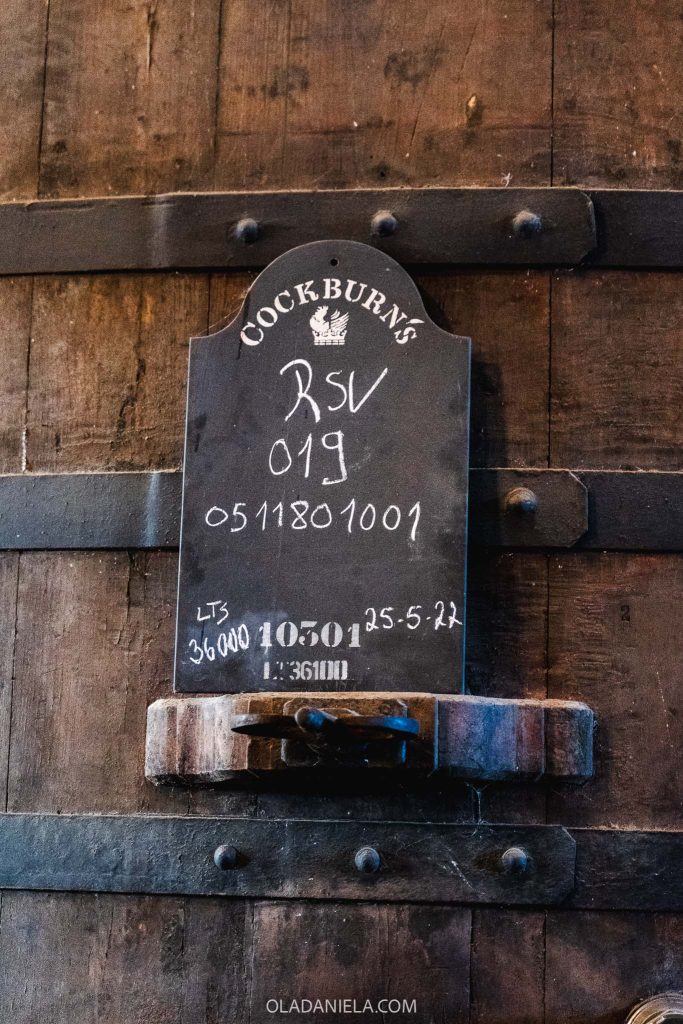 COCKBURN'S
RSV
019
0511801001
LTS
36000 10301 25-5-22
OLADANIELA.COM